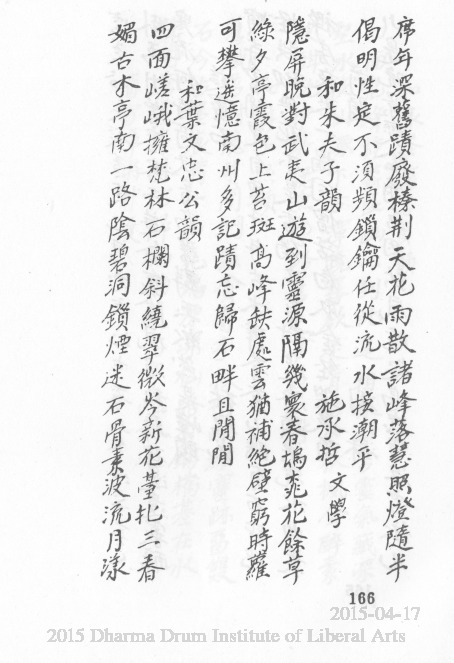 席年深舊蹟廢榛荆天花雨散諸峰落慧照燈隨半
偈明性定不須頻鎖鑰任從流水接潮平
和朱夫子韻　施承哲 文學
隱屏晚對武夷山遊到靈源隔幾寰春塢桃花餘草
綠夕亭霞色上苔斑高峰缺處雲猶補絕壁窮時蘿
可攀遙憶南州多記蹟忘歸石畔且閒閒
和葉文忠公韻
四面嵯峨擁梵林石欄斜繞翠微岑新花臺北三春
媚古木亭南一路陰碧洞鎖煙迷石骨素波流月漾
166
2015-04-17
2015 Dharma Drum Institute of Liberal Arts